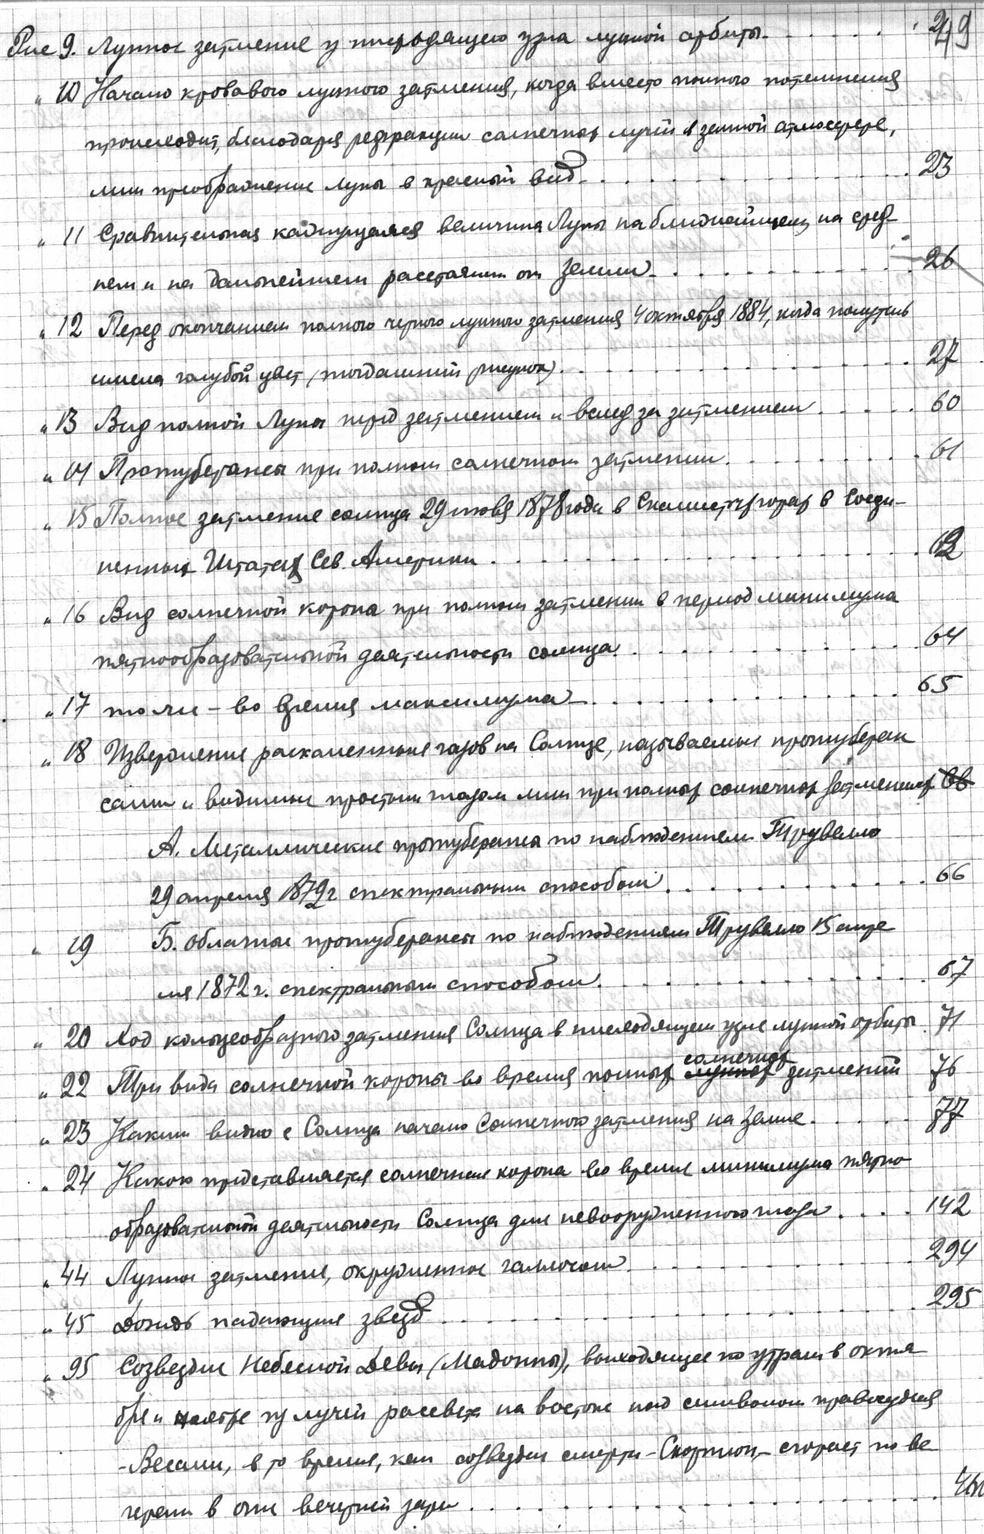 Рис 9. Лунное затмение у нисходящего узла лунной орбиты . . . . . .
" 10 Начало кровавого лунного затмения, когда вместо полного потемнения
происходит, благодаря рефракции солнечных лучей в земной атмосфере,
лишь преображение Луны в красный вид . . . . . . 23
" 11 Сравнительная кажущаяся величина Луны на ближайшем, на сред-
нем и на дальнейшем расстоянии от Земли . . . . . . 26
" 12 Перед окончанием полного черного лунного затмения 4 октября 1884, когда полутень
имела голубой цвет (тогдашний рисунок) . . . . . . 27
" 13 Вид полной Луны перед затмением и вслед за затмением . . . . 60
" 14 Протуберансы при полном солнечном затмении . . . . . . 61
" 15 Полное затмение солнца 29 июля 1878 года в Скалистых горах в Соеди-
ненных Штатах Сев. Америки . . . . . .
" 16 Вид солнечной короны при полном затмении в период минимума
пятнообразовательной деятельности солнца . . . . . . 64
" 17 то же – во время максимума . . . . . . 65
" 18 Извержения раскаленных газов на Солнце, называемых протуберан
сами и видимых простым глазом лишь при полных солнечных затмениях
А. Металлические протуберансы по наблюдениям Трувелло
29 апреля 1872 г спектральным способом . . . . . . 66
" 19 Б. Облачные протуберансы по наблюдениям Трувелло 15 апре
ля 1872 г. спектральным способом . . . . . . 67
" 20 Ход кольцеобразного затмения Солнца в нисходящем узле лунной орбиты . 71
" 22 Три вида солнечной короны во время полных солнечных затмений 76
" 23 Каким видно с Солнца начало Солнечного затмения на Земле . . . . 77
" 24 Какою представляется солнечная корона во время минимума пятно
образовательной деятельности Солнца для невооруженного глаза . . . . 142
" 44 Лунное затмение, окруженное галочкой . . . . . . 294
" 45 Дождь падающих звезд . . . . . . 295
" 95 Созвездие Небесной Девы (Мадонны), выходящее по утрам в октя
бре и ноябре из лучей рассвета на востоке под символом правосудия
– Весами, в то время, как созвездие смерти – Скорпион – сгорает по ве
черам в огне вечерней зари . . . . . .